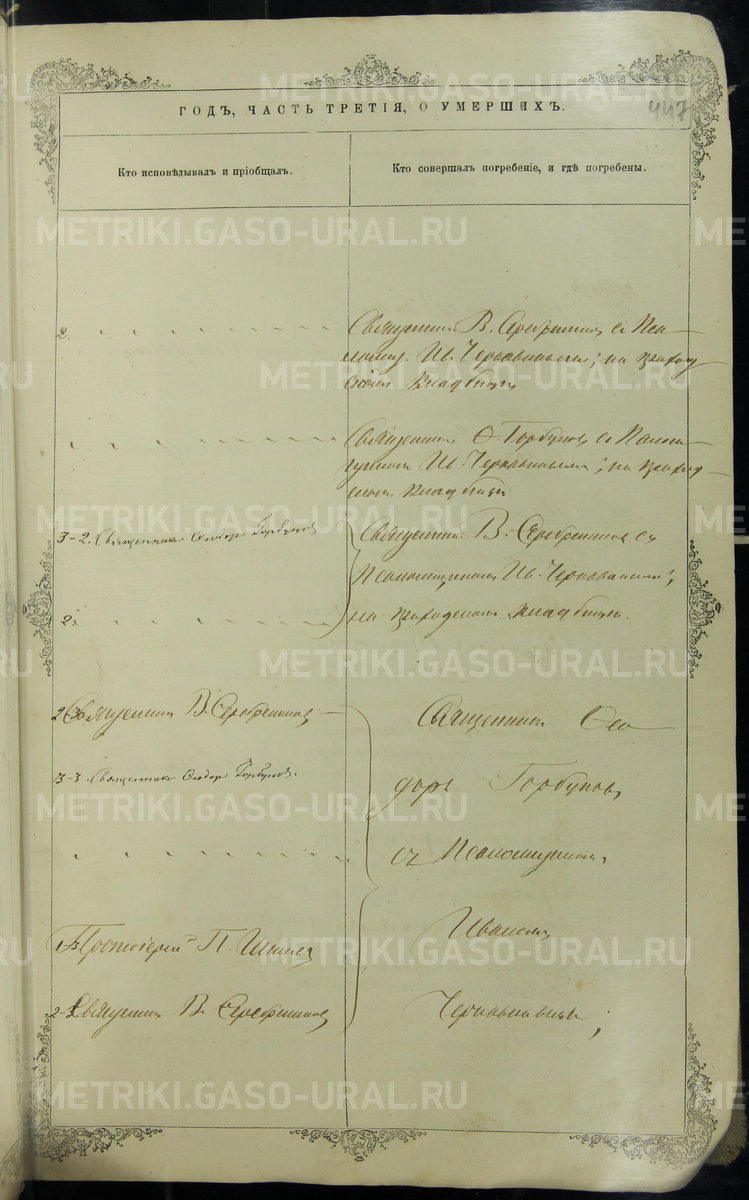 447
ГОДЪ, ЧАСТЬ ТРЕТІЯ, О УМЕРШИХЪ.
Кто исповѣдывалъ и пріобщалъ.
Кто совершалъ погребеніе, и гдѣ погребены.
2.
Священникъ В. Серебренниковъ съ Псал-
Ив. Чернавинымъ; на приход
скомъ кладбищѣ
Священникъ Ѳ. Горбуновъ съ Псалом-
щикомъ Ив. Чернавинымъ; на приход-
скомъ кладбищѣ
3-2. Священникъ Ѳеодоръ Горбуновъ
Священникъ В. Серебренниковъ съ
Псаломщикомъ Ив. Чернавинымъ;
2.
на приходскомъ кладбищѣ.
2-3. Священникъ В. Серебренниковъ
Священникъ Ѳео
3-3. Священникъ Ѳеодоръ Горбуновъ.
доръ Горбуновъ
съ Псаломщикомъ
Протоіерей П.
Иваномъ
2-3. Священникъ В. Серебренниковъ
Чернавинымъ;
METRIKI.GASO-URAL.RU